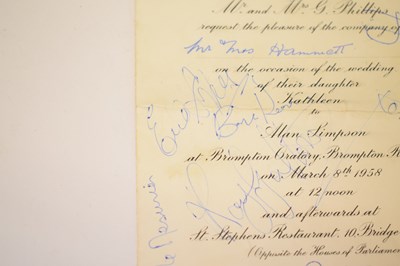 Mr. and Mrs. G. Phillips
request the pleasure of the company of
Mr Mrs Hammett
on the occasion of the wedding
of their daughter
Kathleen
to
Alan Simpson
at Brompton Oratory, Brompton R
on March 8th 1958
at 12 noon
and afterwards at
St. Stephens Restaurant, 10, Bridge
(Opposite the Houses of Parliame